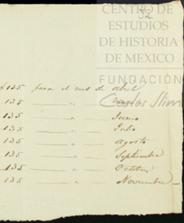 52
CENTRO DE
ESTUDIOS
DE HISTORIA
DE MEXICO
FUNDACIÓN
Carlos Slim
$135 para el mes de abril
135 " " mayo
135 " " Junio
135 " " Julio
135 " " agosto
135 " " Septiembre
135 " " Octubre
135 " " Noviembre